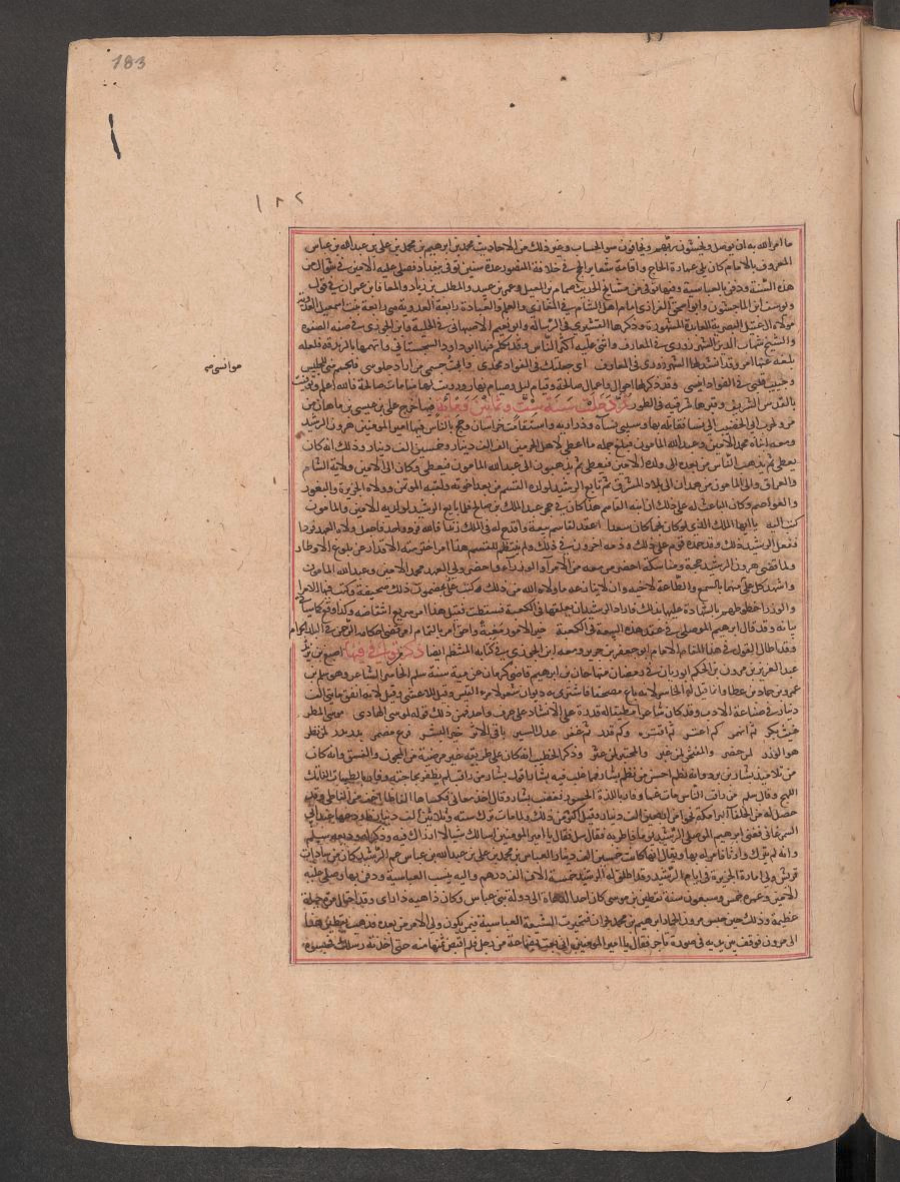 183
١٨٢
ما امر الله به ان يوصل ويخشون ربهم ويخافون سو الحساب وغير ذلك من الاحاديث محمد بن ابرهيم بن محمد بن علي بن عبد الله بن عباس
المعروف بالامام كان يلي امارة الحاج واقامة شعاير الحج في خلافة المنصور عدة سنين توفي ببغداد فصلى عليه الامين في شوال من
هذه السنة ودفن بالعباسية وفيها توفي من مشايخ الحديث تمام بن اسمعيل وعمر بن عبيد والمطلب بن زياد والمعافا بن عمران في قول
ويوسف ابن الماجشون وابو اسحق الفزاري امام اهل الشام في المغازي والعلم والعبادة رابعة العدوية هي رابعة بنت اسمعيل العدوية
مولاة ال عتيك البصرية العابدة المشهورة ذكرها القشيري في الرسالة وابو نعيم الاصبهاني في الحلية وابن الجوزي في صفة الصفوة
والشيخ شهاب الدين السهروردي في المعارف واثنى عليها اكثر الناس وقد تكلم فيها ابو داود السجستاني واتهمها بالزندقة فلعله
بلغه عنها امر وقد انشد لها السهروردي في المعارف اني جعلتك في الفواد محدثي وابحت جسمي من اراد جلوسي فالجسم مني للجليس
موانس صح
وحبيب قلبي في الفواد انيسي وقد ذكر لها احوال واعمال صالحة وقيام ليل وصيام نهار ورويت لها منامات صالحة فالله اعلم توفيت
بالقدس الشريف وقبرها شرقيه في الطور ثم دخلت سنة ست وثمانين ومائة فيها خرج علي بن عيسى بن ماهان من
مرو لحرب ابي الخصيب الى نسا فقاتله بها وسبى نساه وذراريه واستقامت خراسان وحج بالناس فيها امير المومنين هرون الرشيد
ومعه ابناه محمد الامين وعبد الله المامون فبلغ جملة ما اعطى لاهل الحرمين الف الف دينار وخمسين الف دينار وذلك انه كان
يعطي ثم يذهب الناس من بعده الى ولده الامين فيعطي ثم يذهبون الى عبد الله المامون فيعطي وكان الى الامين ولاية الشام
والعراق والى المامون من همدان الى بلاد المشرق ثم تابع الرشيد لولده القسم من بعد اخوته ولقبه الموتمن وولاه الجزيرة والثغور
والعواصم وكان الباعث له على ذلك ان ابنه القاسم هذا كان في حجر عبد الملك بن صالح فلما بايع الرشيد لولديه الامين والمامون
كتب اليه يا ايها الملك الذي لو كان نجما كان سعدا اعقد لقاسم بيعة واقدح له في الملك زندا فالله فرد واحد فاجعل ولاة العهد فردا
ففعل الرشيد ذلك وقد حمده قوم على ذلك وذمه اخرون في ذلك ولم ينتظم للقسم هذا امر اخترمته الاقدار عن بلوغ الاوطار
ولما قضى هرون الرشيد حجه ومناسكه احضر من معه من الامرا والوزراء واحضر ولي العهد محمد الامين وعبد الله المامون
واشهد كل على منهما بالسمع والطاعة لاخيه وان لا ينازعه ما ولاه الله من ذلك وكتب على مضمون ذلك صحيفة وكتب فيها الامرا
والوزرا خطوطهم بالشهادة عليهما بذلك فاراد الرشيد ان يعلقها في الكعبة فسقطت فقيل هذا امر سريع انتقاضه وكذا وقع كما سياتي
بيانه وقد قال ابرهيم الموصلي في عقد هذه البيعة في الكعبة خير الامور مغبة واحق امر بالتمام امر قضى احكامه الرحمن في البلد الحرام
وقد اطال القول في هذا المقام الامام ابو جعفر بن جرير وتبعه ابن الجوزي في كتابه المنتظم ايضا ذكر من توفي فيها اصبغ بن
عبد العزيز بن مرون بن الحكم ابو ريان في رمضان منها حسان بن ابرهيم قاضي كرمان عن مية سنة سلم الخاسر الشاعر وهو سلم بن
عمرو بن حماد بن عطا وانما قيل له الخاسر لانه باع مصحفا فاشترى به ديوان شعر لامرء القيس وقيل للاعشى وقيل لانه انفق مايتي الف
دينار في صناعة الادب وقد كان شاعرا منطيقا له قدرة على الانشاد على حرف واحد فمن ذلك قوله لموسى الهادي موسى المطر
غيث بكر ثم انهمر كم اعتسر ثم ايتسر وكم قدر ثم غفر عدل السير باقي الاثر خير البشر فرع مضر بدر بدر لمن نظر
هو الوزر لمن حضر والمفتخر لمن غبر والمجتبر لمن عثر وذكر الخطيب انه كان على طريقة غير مرضية من المجون والفسق وانه كان
من تلاميذ بشار بن برد وانه نظم احسن من نظم بشار فما غلب فيه بشارا قول بشار من راقب الناس لم يظفر بحاجته وفاز بالطيبات الفاتك
اللهج وقال سلم من راقب الناس مات غما وفاز باللذة الجسور فغضب بشار وقال اخذ معاني فكساها الفاظا اخف من الفاظي وقد
حصل له من الخلفاء والبرامكة نحوا من اربعين الف دينار وقيل اكثر من ذلك ولما مات ترك ستة وثلاثين الف دينار وديعة عند ابي
السمر غاني فغنى ابرهيم الموصلي الرشيد يوما فاطربه فقال سل فقال يا امير المومنين اسالك شيا لا ارزاك فيه وذكر له وديعة سلم
وانه لم يترك وارثا فامر له بها ويقال انها كانت خمسين الف دينار العباس بن محمد بن علي بن عبد الله بن عباس عم الرشيد كان من سادات
قريش ولي امارة الجزيرة في ايام الرشيد وقد اطلق له الرشيد خمسة الاف الف درهم واليه ينسب العباسية ودفن بها وصلى عليه
الامين وعمره خمس وستون سنة يقطين بن موسى كان احد الدعاة الى دولة بني عباس وكان داهية ذا راي وقد احتال مرة حيلة
عظيمة وذلك حين حبس مرون الحمار ابرهيم بن محمد بحران فتحيرت الشيعة العباسية فيمن يكون ولي الامر من بعده فذهب يقطين هذا
الى مرون فوقف بين يديه في صورة تاجر فقال يا امير المومنين اني بعت بضاعة من رجل فلم اقبض ثمنها منه حتى اخذته رسلك فحبسوه